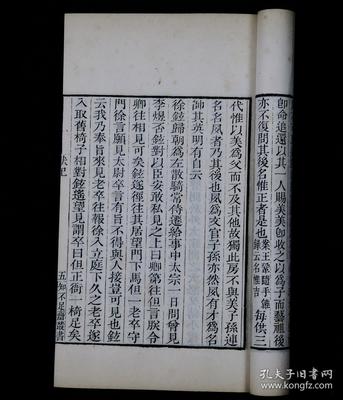 卽命追還以其一人賜美美卽收之以爲子而藝祖後
亦不復問其後名惟正者是也案王鞏隨手雜錄云名惟吉每供三
代惟以美爲父而不及其他故獨此房不與美子孫連
名名夙乃其後也夙爲文官子孫亦然夙有才爲名
師其英明有自云
徐鉉歸朝爲左散騎常侍遷給事中太宗一日問曾見
李煜否鉉對以臣安敢私見之上曰卿第往但言朕令
卿往相見可矣鉉遂徑往其居望門下馬但一老卒守
門徐言願見太尉卒言有旨不得與人接豈可見也鉉
云我乃奉旨來見老卒往報徐入立庭下久之老卒遂
入取舊椅子相對鉉遙望見謂卒曰但正衙一椅足矣
默記 五 知不足齋叢書
孔夫子旧书网
www.kongfz.com